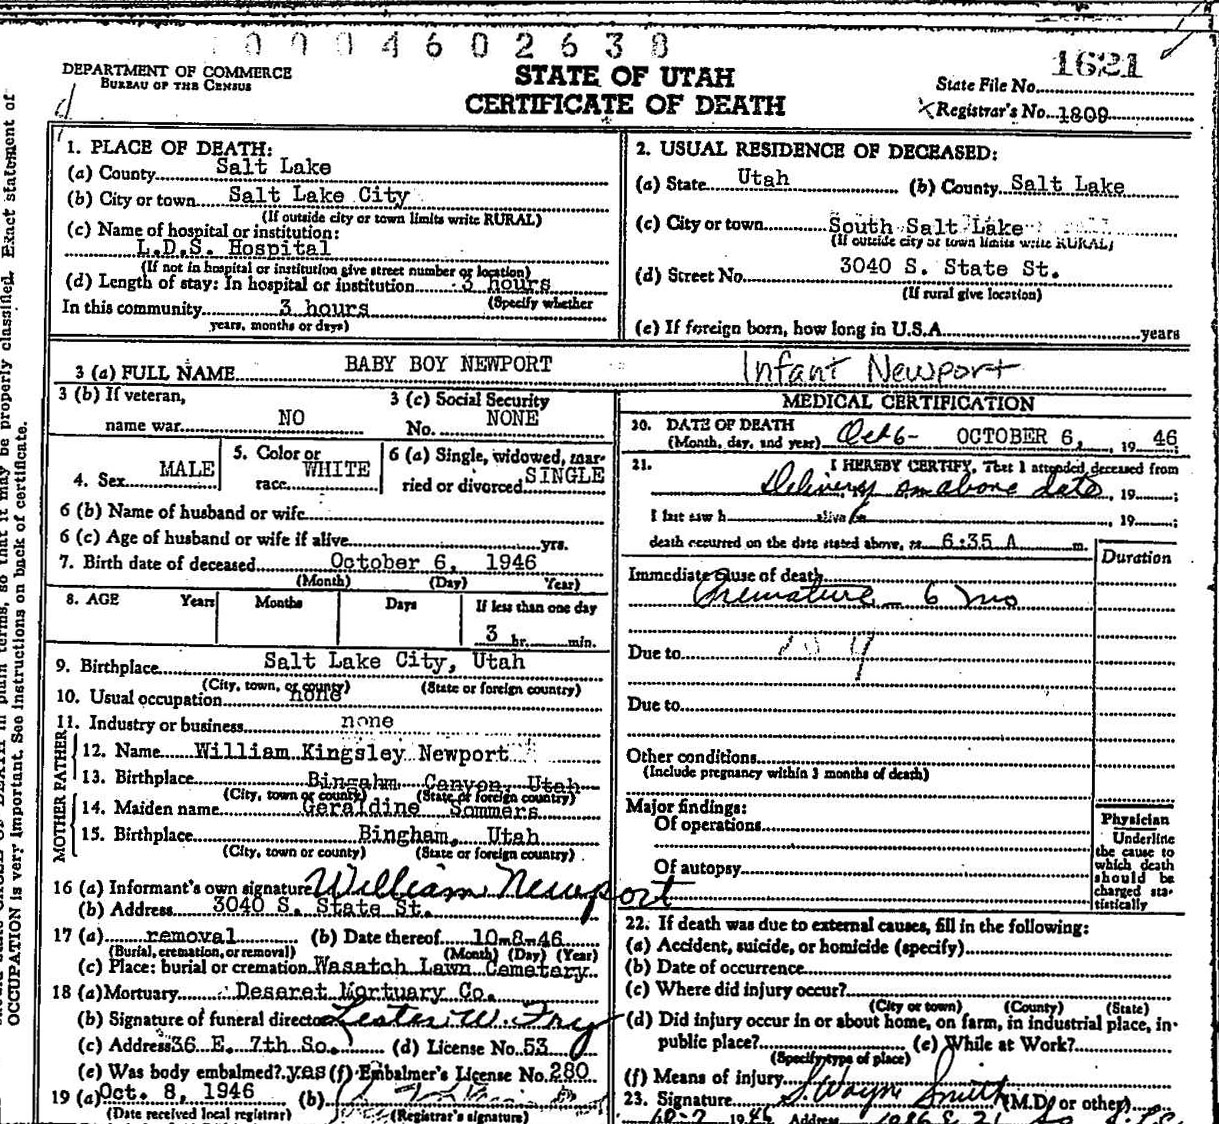 0004602638
DEPARTMENT OF COMMERCE
BUREAU OF THE CENSUS
STATE OF UTAH
CERTIFICATE OF DEATH
1621
State File No.
Registrar's No. 1809
OCCUPATION is very important. See instructions on back of certificate.
so that it may be properly classified. Exact statement of
1. PLACE OF DEATH:
(a) County Salt Lake
(b) City or town Salt Lake City
(If outside city or town limits write RURAL)
(c) Name of hospital or institution:
L.D.S. Hospital
(If not in hospital or institution give street number or location)
(d) Length of stay: In hospital or institution 3 hours
(Specify whether
In this community 3 hours
years, months or days)
2. USUAL RESIDENCE OF DECEASED:
(a) State Utah (b) County Salt Lake
(c) City or town South Salt Lake
(If outside city or town limits write RURAL)
(d) Street No. 3040 S. State St.
(If rural give location)
(e) If foreign born, how long in U.S.A. years
3 (a) FULL NAME BABY BOY NEWPORT Infant Newport
3 (b) If veteran,
name war NO
3 (c) Social Security
No. NONE
4. Sex MALE
5. Color or
race WHITE
6 (a) Single, widowed, mar-
ried or divorced SINGLE
6 (b) Name of husband or wife
6 (c) Age of husband or wife if alive yrs.
7. Birth date of deceased October 6, 1946
(Month) (Day) Year)
8. AGE Years Months Days If less than one day
3 hr. min.
9. Birthplace Salt Lake City, Utah
(City, town, or county) (State or foreign country)
10. Usual occupation none
11. Industry or business none
FATHER
12. Name William Kingsley Newport
13. Birthplace Bingahm Canyon, Utah
(City, town or county) (State or foreign country)
MOTHER
14. Maiden name Geraldine Sommers
15. Birthplace Bingham, Utah
(City, town or county) (State or foreign country)
16 (a) Informant's own signature William Newport
(b) Address 3040 S. State St.
17 (a) removal (b) Date thereof 10-8-46
(Burial, cremation, or removal) (Month) (Day) (Year)
(c) Place: burial or cremation Wasatch Lawn Cemetary
18 (a) Mortuary Deseret Mortuary Co.
(b) Signature of funeral director Lester W. Fry
(c) Address 36 E. 7th So. (d) License No. 53
(e) Was body embalmed? yes (f) Embalmer's License No. 280
19 (a) Oct. 8, 1946 (b)
(Date received local registrar) (Registrar's signature)
MEDICAL CERTIFICATION
20. DATE OF DEATH
(Month, day, and year) Oct 6- OCTOBER 6, 19 46
21. I HEREBY CERTIFY, That I attended deceased from
Delivery on above date, 19 ;
I last saw h alive on , 19 ;
death occurred on the date stated above, at 6:35 A m.
Duration
Immediate cause of death
Premature - 6 mo
Due to
Due to
Other conditions
(Include pregnancy within 3 months of death)
Major findings:
Of operations
Of autopsy
Physician
Underline
the cause to
which death
should be
charged sta-
tistically
22. If death was due to external causes, fill in the following:
(a) Accident, suicide, or homicide (specify)
(b) Date of occurrence
(c) Where did injury occur?
(City or town) (County) (State)
(d) Did injury occur in or about home, on farm, in industrial place, in-
public place? (e) While at Work?
(Specify type of place)
(f) Means of injury
23. Signature S. Wayne Smith (M.D. or other)
Address